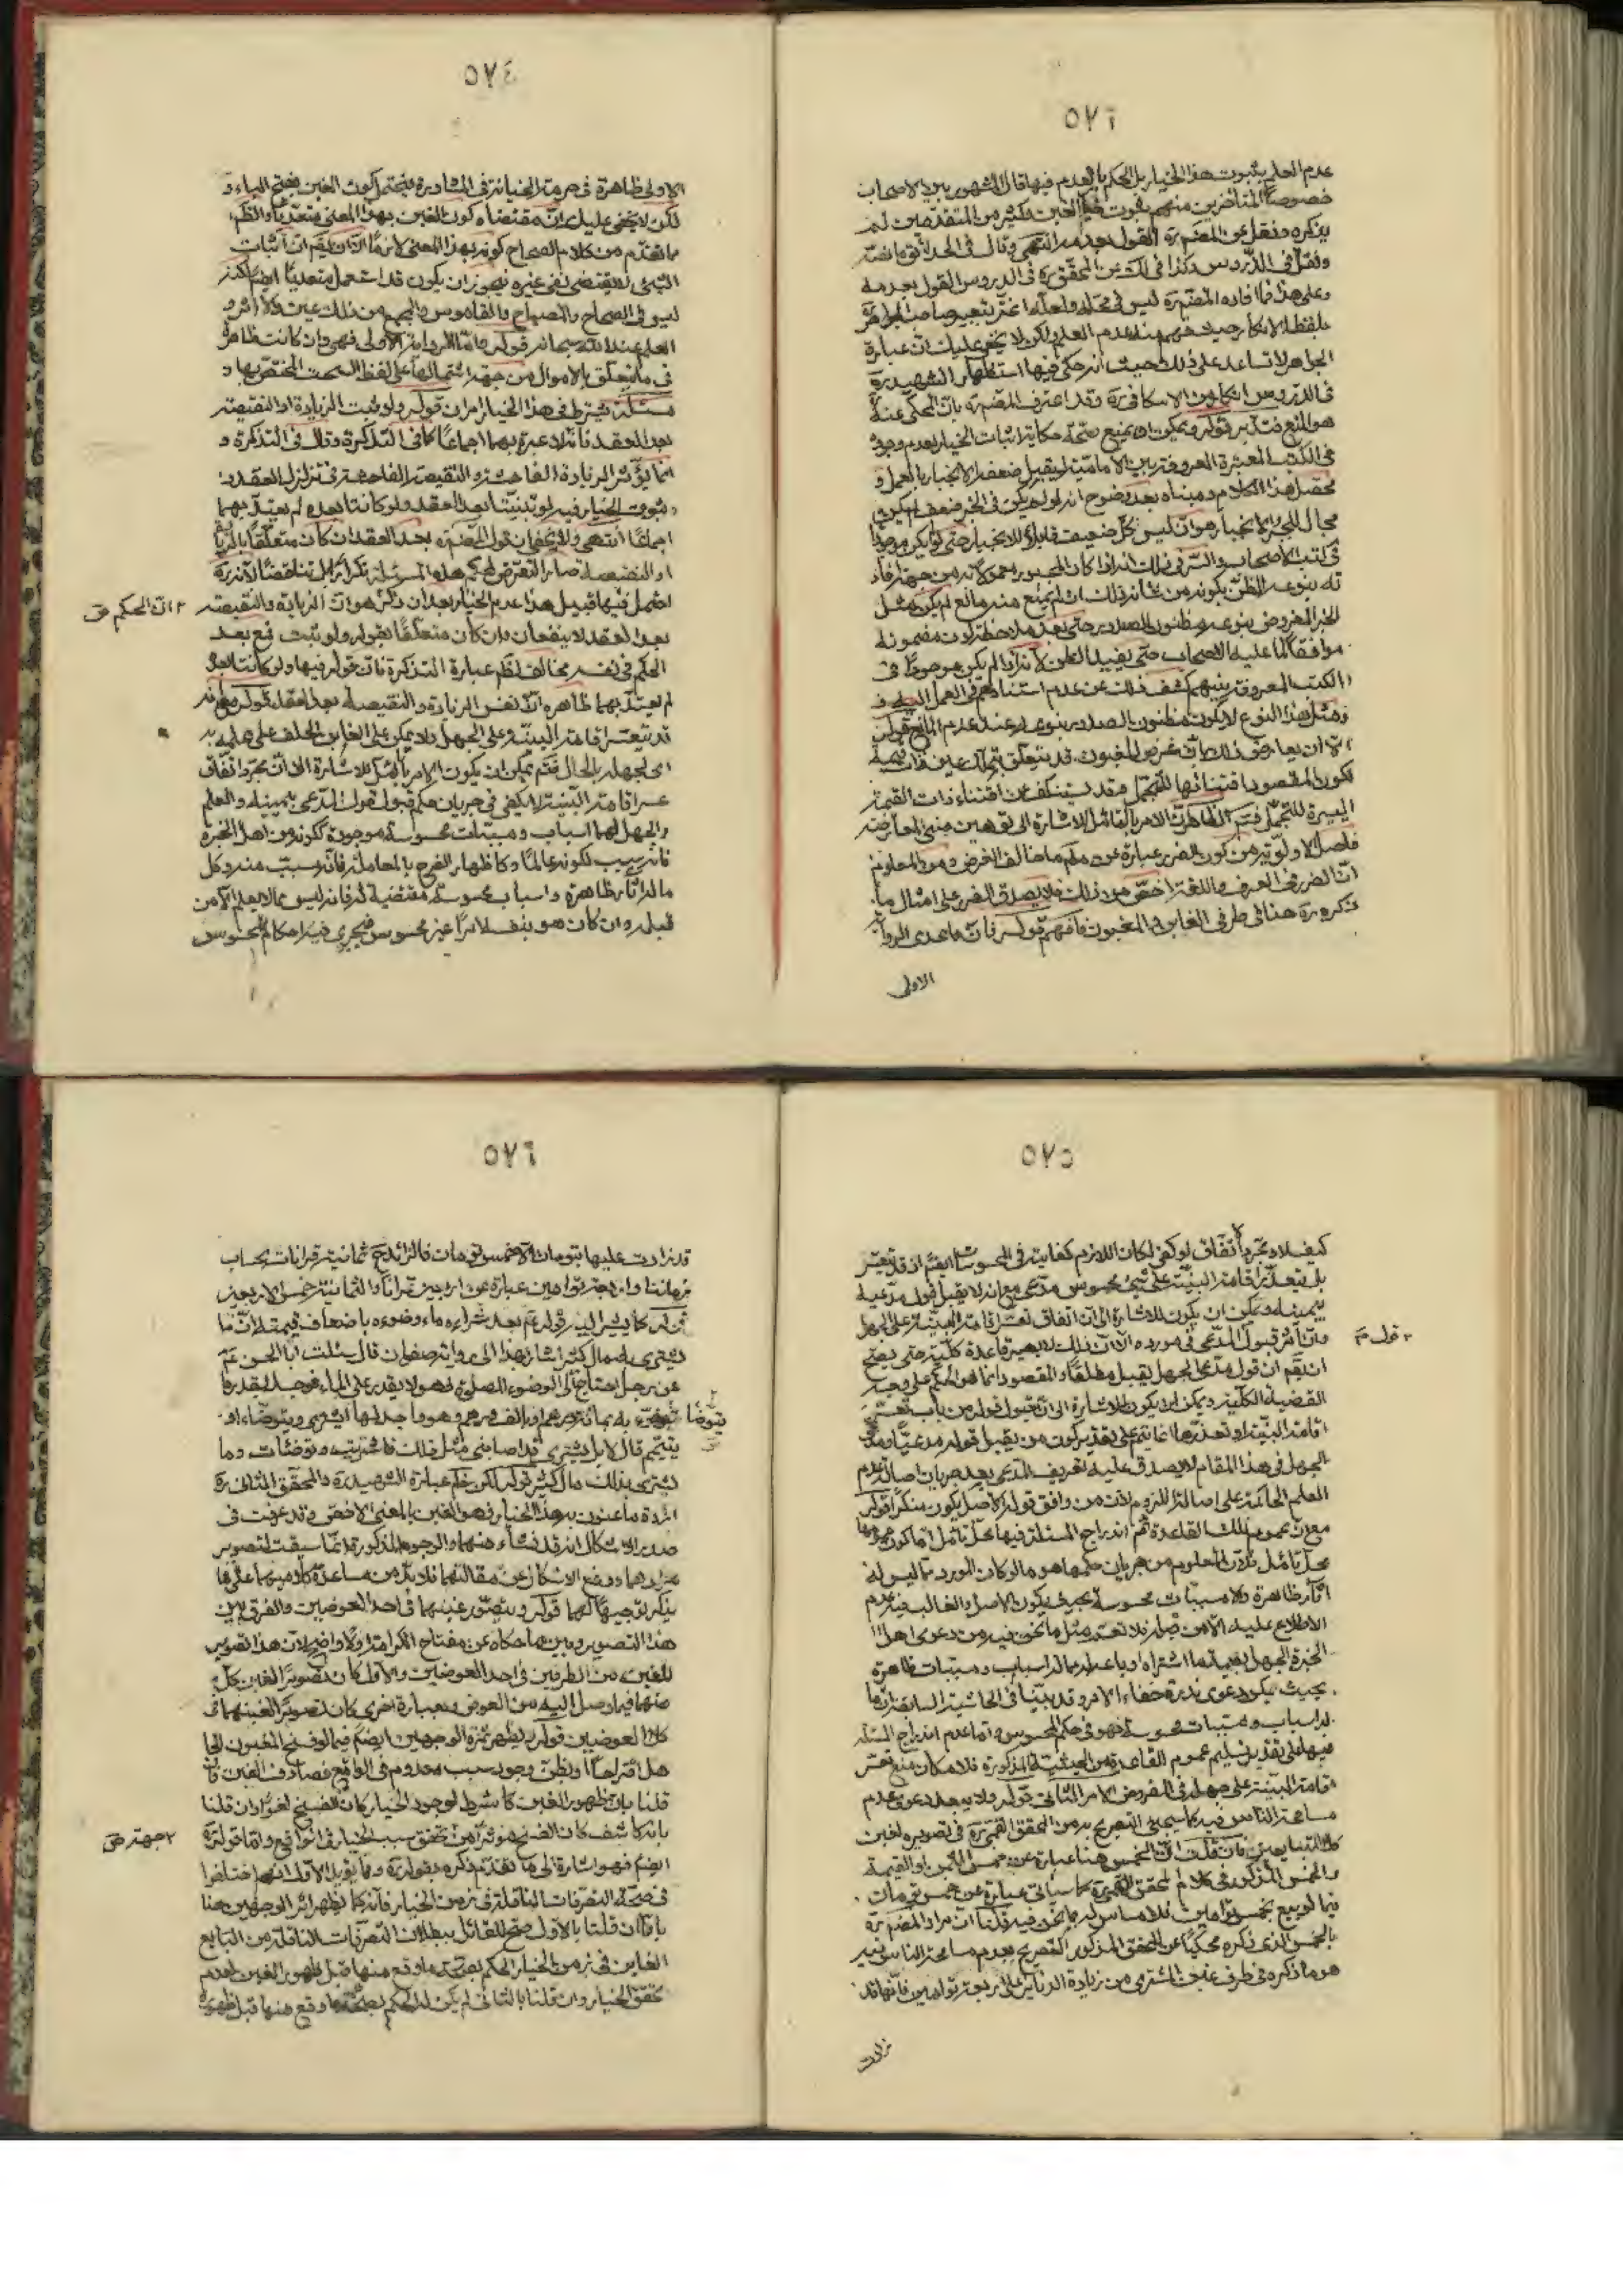 ٥٧٦
عدم العلم بثبوت هذا الخيار بل الحكم بالعدم فيها قال المشهور بين الاصحاب
خصوصاً المتأخرين منهم ثبوت خيار الغبن وكثير من المتقدمين لم
يذكره ونقل عن المصنف ره القول بعدمه انتهى وقال في الحدائق ما نصّه
ونقل في الدروس وكذا في لك عن المحقق ره في الدروس القول بعدمه
وعلى هذا فما افاده المصنف ره ليس في محله ولعله اغتر بتعبير صاحب الجواهر
بلفظ الانكار حيث فهم منه عدم العلم ولكن لا يخفى عليك ان عبارة
الجواهر لا تساعد على ذلك حيث انه حكى فيها استظهار الشهيد ره
في الدروس من الاسكافي ره وقد اعترف المصنف ره بان المحكي عنه
هو المنع فتدبر قوله ويمكن ان يمنع صحة حكاية اثبات الخيار لعدم وجوده
في الكتب المعتبرة المعروفة بين الامامية ليقبل ضعفه الانجبار بالعمل
محصل هذا الكلام ومبناه بعد وضوح انه لو لم يكن في الخبر ضعف لم يكن
مجال للجبر والانجبار هو ان ليس كل ضعيف قابلاً للانجبار حتى لو لم يكن موجوداً
في كتب الاصحاب والسر في ذلك انه اذا كان المجبور
له بنوعه الظن بكونه من شانه ذلك ان لم يمنع منه مانع لم يكن مثل
الخبر المفروض بنوعه مظنون الصدور حتى بعد ملاحظة كون مضمونه
موافقاً لما عليه الاصحاب حتى يفيد الظن لانه اذا لم يكن موجوداً في
الكتب المعروفة بينهم كشف ذلك عن عدم استنادهم في العمل اليه و
مثل هذا النوع لا يكون مظنون الصدور بنوعه وعند عدم المانع قوله
الا ان يعارض ذلك بان غرض المغبون قد يتعلق بتملك عين ذات قيمة
لكون المقصود اقتنائها للتجمل وقد يستنكف عن اقتناء ذات القيمة
اليسيرة للتجمل فتم الظاهر ان الامر بالتامل للاشارة الى توهين مبنى المعارضة
فاصل الاولوية من كون الضرر عبارة عن ما خالف الغرض ومن المعلوم
ان الضرر في العرف واللغة اخص من ذلك فلا يصدق الضرر على امثال ما
ذكره ره هنا في طرفي الغابن والمغبون فافهم قوله فان ما عدى الرواية
الاولى
٥٧٤
الاولى ظاهرة في حرمة الخيانة في المشاورة فيحتمل كون الغبن بفتح الباء و
لكن لا يخفى عليك ان مقتضاه كون الغبن بهذا المعنى متعدياً والظ
ما تقدم من كلام الصحاح كونه بهذا المعنى لازماً الا ان يقم ان اثبات
الشيء لا يقتضي نفى غيره فيجوز ان يكون قد استعمل متعدياً ايضاً لكنه
ليس في الصحاح والمصباح والقاموس والمجمع من ذلك عين ولا اثر و
العلم عند الله سبحانه قوله واما الرواية الاولى فهي وان كانت ظاهرة
في ما يتعلق بالاموال من جهة اشتمالها على لفظ السحت المختص بها و
مسئلة يشترط في هذا الخيار امران قوله ولو ثبت الزيادة او النقيصة
بعد العقد فانه لا عبرة بهما اجماعاً كما في التذكرة وقال في التذكرة و
انما يؤثر الزيادة الفاحشة والنقيصة الفاحشة في تزلزل العقد
وثبوت الخيار فيه لو تبينتا بعد العقد ولو كانتا بعده لم يعتد بهما
اجماعاً انتهى ولا يخفى ان قول المصنف ره بعد العقد ان كان متعلقاً بالزيادة
او النقيصة صار التعرض لحكم هذه المسئلة تكراراً بل تناقضاً لانه ره
احتمل فيها قبيل هذا عدم الخيار بعد ان ذكر هو ان الزيادة والنقيصة
ان الحكم ص
بعد العقد لا ينفعان وان كان متعلقاً بقوله ولو ثبت فمع بعد
الحكم في نفسه مخالف لظ عبارة التذكرة فان قوله فيها ولو كانتا بعده
لم يعتد بهما ظاهره ان نفس الزيادة والنقيصة بعد العقد قوله مع انه
قد يتعسر اقامة البينة على الجهل ولا يمكن على الغابن الحلف على علمه به
لجهله بالحال فتم يمكن ان يكون الامر بالتامل للاشارة الى ان مجرد اتفاق
عسر اقامة البينة لا يكفي في جريان حكم قبول قول المدعى بيمينه والعلم
والجهل لهما اسباب ومسببات محسوسة موجودة ككونه من اهل الخبرة
فانه سبب لكونه عالماً وكاظهار الفرح بالمعاملة فانه مسبب منه وكل
ما له آثار ظاهرة واسباب محسوسة مقتضية له فانه ليس مما لا يعلم الا من
قبله وان كان هو بنفسه امراً غير محسوس فيجري فيه احكام المحسوس
٥٧٥
كيف لا ومجرد اتفاق لو كفى لكان اللازم كفايته في المحسوسات ايضاً اذ قد يتعسر
بل يتعذر اقامة البينة على شيء محسوس مدعى مع انه لا يقبل قول مدعيه
بيمينه ويمكن ان يكون للاشارة الى ان اتفاق تعسر اقامة البينة على الجهل
وان اثر قبول المدعى في مورده الا ان ذلك لا يصير قاعدة كلية حتى يصح
قول ص
ان يقم ان قول مدعى الجهل يقبل مطلقاً والمقصود انما هو الحكم على وجه
القضية الكلية ويمكن ان يكون للاشارة الى ان قبول قوله من باب تعسر
اقامة البينة او تعذرها انما يتم على تقدير كون من يقبل قوله مدعياً ومدعى
الجهل في هذا المقام لا يصدق عليه تعريف المدعى بعد جريان اصالة عدم
العلم الحاكمة على اصالة اللزوم لان من وافق قوله الاصل يكون منكراً قوله
مع ان عموم تلك القاعدة ثم اندراج المسئلة فيها محل تامل اما كون عمومها
محل تامل فلان المعلوم من جريان حكمها هو ما لو كان المورد مما ليس له
آثار ظاهرة ولا مسببات محسوسة بحيث يكون الاصل والغالب فيه عدم
الاطلاع عليه الا من قبله فلا تعم مثل ما نحن فيه من دعوى اهل
الخبرة الجهل بقيمة ما اشتراه او باعه مما له اسباب ومسببات ظاهرة
بحيث يكون دعوى ندرة خفاء الامر وقد بينا في الحاشية السابقة ان ما
له اسباب ومسببات محسوسة فهو في حكم المحسوس واما عدم اندراج المسئلة
فيها على تقدير تسليم عموم القاعدة من الحيثية المذكورة فلامكان منع تعسر
اقامة البينة على جهله في المفروض الامر الثاني قوله ولا يبعد دعوى عدم
مسامحة الناس فيه كما سيجيء التصريح به من المحقق القمي ره في تصويره لغبن
كلا المتبايعين فان قلت ان الخمس هنا عبارة عن خمس الثمن او القيمة
والخمس المذكور في كلام المحقق القمي ره كما سياتي عبارة عن خمس تومان
فيما لو بيع بخمس توامين فلا مساس له بما نحن فيه قلنا ان مراد المصنف ره
بالخمس الذي ذكره محكياً عن المحقق المذكور التصريح بعدم مسامحة الناس فيه
هو ما ذكره في طرف غبن المشتري من زيادة الدنانير على اربعة توامين فانها قد
زادت
٥٧٦
قد زادت عليها بتومان الا خمس تومان فالزائد ح ثمانية قرانات بحساب
زماننا واربعة توامين عبارة عن اربعين قراناً والثمانية خمس الاربعين
قوله كما يشير اليه قوله عم بعد شرائه ماء وضوءه باضعاف قيمته ان ما
يشترى به مال كثير اشار بهذا الى رواية صفوان قال سئلت ابا الحسن عم
عن رجل احتاج الى الوضوء للصلوة وهو لا يقدر على الماء فوجد بقدر ما
يتوضأ به بمائة درهم او بالف درهم وهو واجد لها ايشترى ويتوضأ او
يتوضأ
يتيمم قال لا بل يشترى قد اصابني مثل ذلك فاشتريت وتوضأت وما
يشترى بذلك مال كثير قوله لكن ظ عبارة الشهيد ره والمحقق الثاني ره
ارادة ما عنون به هذا الخيار وهو الغبن بالمعنى الاخص وقد عرفت في
صدر الاشكال انه قد نشاء منهما والوجوه المذكورة انما سيقت لتصوير
مرادهما ودفع الاشكال عن مقالتهما فلا بد من مساعدة كلاميهما على ما
يذكر توجيهاً لهما قوله ويتصور غبنهما في احد العوضين والفرق بين
هذا التصوير وبين ما حكاه عن مفتاح الكرامة اولاً واضح لان هذا تصوير
للغبن من الطرفين في احد العوضين والاول كان تصويراً لغبن كل
منهما فيما وصل اليه من العوض وبعبارة اخرى كان تصويراً لغبنهما في
كلا العوضين قوله ويظهر ثمرة الوجهين ايضاً فيما لو فسخ المغبون الجا
هل اقتراحاً او بظن وجود سبب معدوم في الواقع فصادف الغبن فان
قلنا بان ظهور الغبن كان شرطاً لوجود الخيار كان الفسخ لغواً وان قلنا
بانه كاشف كان الفسخ مؤثراً من تحقق سبب الخيار في الواقع واما قوله ره
جهة ص
ايضاً فهو اشارة الى ما تقدم ذكره بقوله ره ومما يؤيد الاول انهم اختلفوا
في صحة التصرفات الناقلة في زمن الخيار فانه كما يظهر اثر الوجهين هنا
بانا ان قلنا بالاول صح للقائل ببطلان التصرفات الناقلة من البايع
الغابن في زمن الخيار الحكم بصحة ما وقع منها قبل ظهور الغبن لعدم
تحقق الخيار وان قلنا بالثاني لم يكن له الحكم بصحة ما وقع منها قبل ظهوره